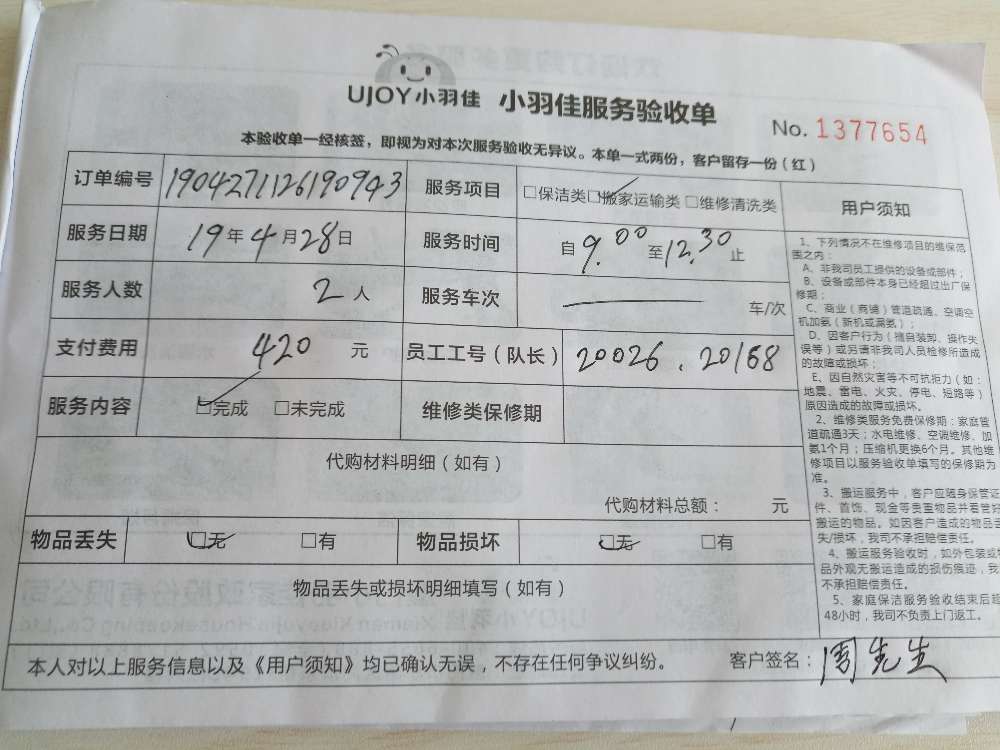 UJOY小羽佳 小羽佳服务验收单
No. 1377654
本验收单一经核签，即视为对本次服务验收无异议。本单一式两份，客户留存一份（红）
订单编号 190427112619094 3 服务项目 □保洁类 □搬家运输类 □维修清洗类
服务日期 19年4月28日 服务时间 自9.00至12.30止
服务人数 2人 服务车次 车/次
支付费用 420元 员工工号（队长） 20026.20168
服务内容 □完成 □未完成 维修类保修期
代购材料明细（如有）
代购材料总额： 元
物品丢失 □无 □有 物品损坏 □无 □有
物品丢失或损坏明细填写（如有）
用户须知
1、下列情况不在维修项目的维保范
围之内：
A、非我司员工提供的设备或部件；
B、设备或部件本身已经超过出厂保
修期；
C、商业（商铺）管道疏通、空调空
机加氨（新机或漏氨）；
D、因客户行为（擅自装卸、操作失
误等）或另请非我司人员检修所造成
的故障或损坏；
E、因自然灾害等不可抗拒力（如：
地震、雷电、火灾、停电、短路等）
原因造成的故障或损坏。
2、维修类服务免费保修期：家庭管
道疏通3天；水电维修、空调维修、加
氨1个月；压缩机更换6个月。其他维
修项目以服务验收单填写的保修期为
准。
3、搬运服务中，客户应随身保管证
件、首饰、现金等贵重物品并看管好
搬运的物品。如因客户造成的物品丢
失/损坏，我司不承担赔偿责任。
4、搬运服务验收时，如外包装或物
品外观无搬运造成的损伤痕迹，我
不承担赔偿责任。
5、家庭保洁服务验收结束后超
48小时，我司不负责上门返工。
本人对以上服务信息以及《用户须知》均已确认无误，不存在任何争议纠纷。 客户签名：周先生